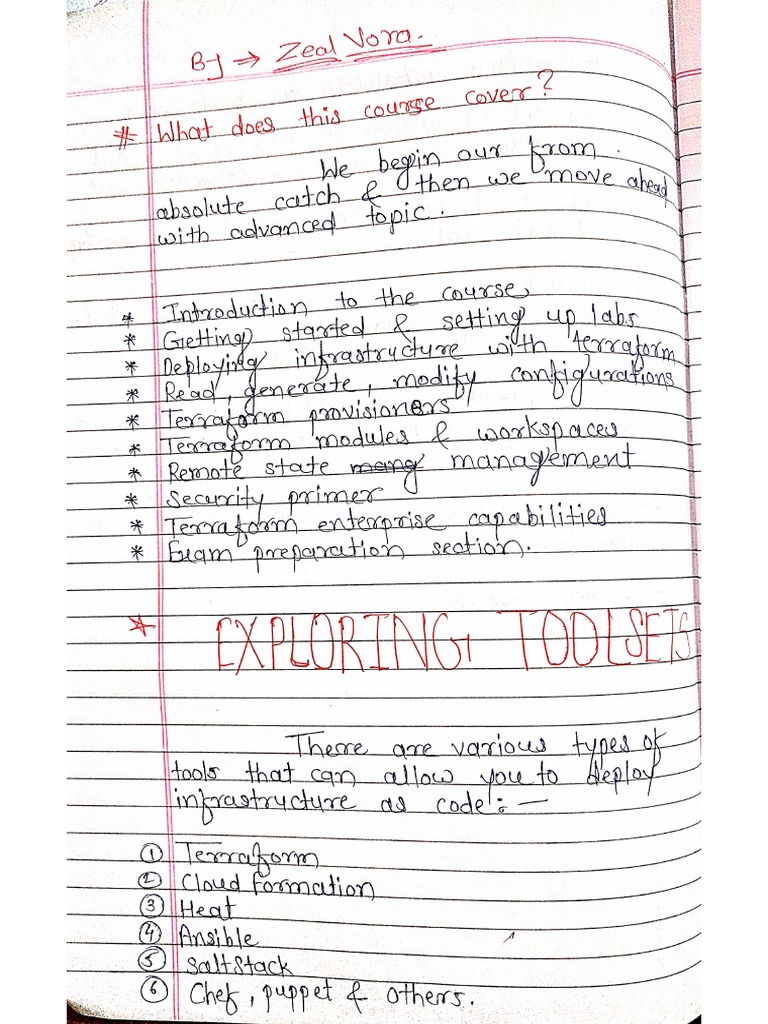 By → Zeal Vora.
# What does this course cover?
We begin our from.
absolute catch & then we move ahead
with advanced topic.
* Introduction to the course
* Getting started & setting up labs
* Deploying infrastructure with terraform
* Read, generate, modify configurations
* Terraform provisioners
* Terraform modules & workspaces
* Remote state mang management
* Security primer
* Terraform enterprise capabilities
* Exam preparation section.
* EXPLORING TOOLSETS
There are various types of
tools that can allow you to deploy
infrastructure as code:-
① Terraform
② Cloud formation
③ Heat
④ Ansible
⑤ SaltStack
⑥ Chef, puppet & others.